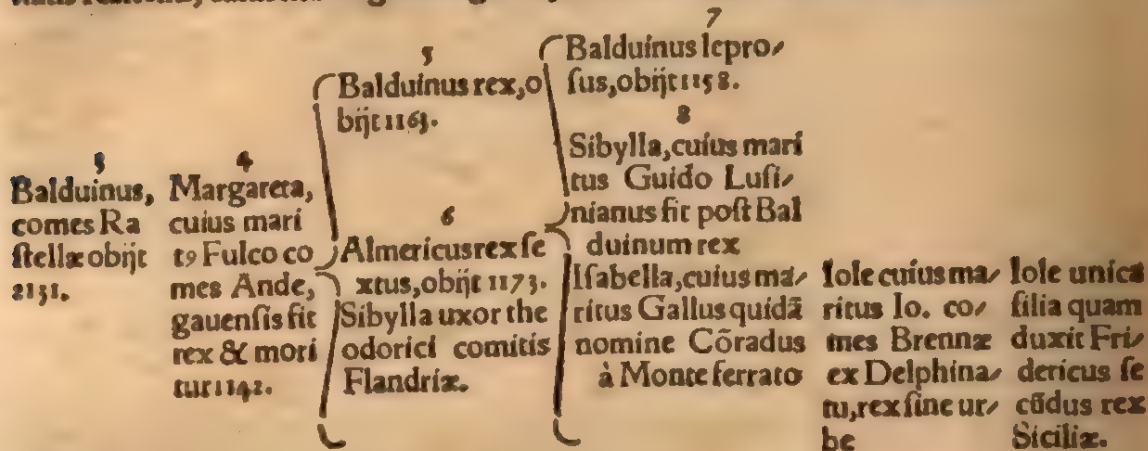 3
Balduinus,
comes Ra
ſtellæ obijt
2131.
4
Margareta,
cuius mari
t9 Fulco co
mes Ande,
gauenſis fit
rex & mori
tur 1142.
5
Balduinus rex, o
bijt 1163.
6
Almericus rex ſe
xtus, obijt 1173.
Sibylla uxor the
odorici comitis
Flandriæ.
7
Balduinus lepro/
ſus, obijt 1158.
8
Sibylla, cuius mari
tus Guido Luſi/
nianus fit poſt Bal
duinum rex
Iſabella, cuius ma/
ritus Gallus quidã
nomine Cõradus
à Monte ferrato
Iole cuius ma/
ritus Io. co/
mes Brennæ
ex Delphina/
tu, rex ſine ur/
be
Iole unica
filia quam
duxit Fri/
dericus ſe
cũdus rex
Siciliæ.